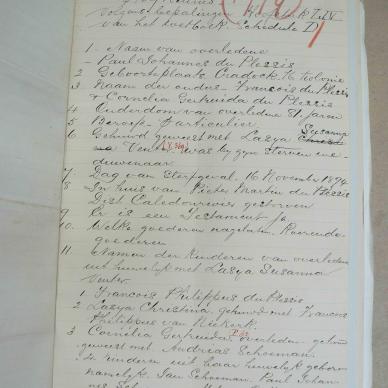 volgens bepalingen Hoofdstuk
van het wetboek Schedule D
1. Naam van overledene
Paul Johannes du Plessis
2 Geboorteplaats Cradock K Kolonie
3 Naam der ouders Francois du Plessis
& Cornelia Gertruida du Plessis
4 Ouderdom van overledene 81 jaren
5 Beroep Particulier
6 Gehuwd geweest met Lasya Susanna
Venter was by zyn sterven
weduwenaar
7. Dag van sterfgeval 16 November 1894
8 In huis van Pieter Martin du Plessis
Dist Caledonrivier gestorven
9 Er is een Testament ja
10. Welke goederen nagelaten Roerende
goederen
11. Namen der kinderen van overledene
uit huwelyk met Lasya Susanna
Venter
1. Francois Philippus du Plessis
2 Lasya Christina, gehuwd met Francois
Philippus van Niekerk
3. Cornelia Gertruida overleden gehuwd
geweest met Andreas Schoeman
kinderen uit haar huwelyk
namelyk Jan Schoeman Paul Johan-